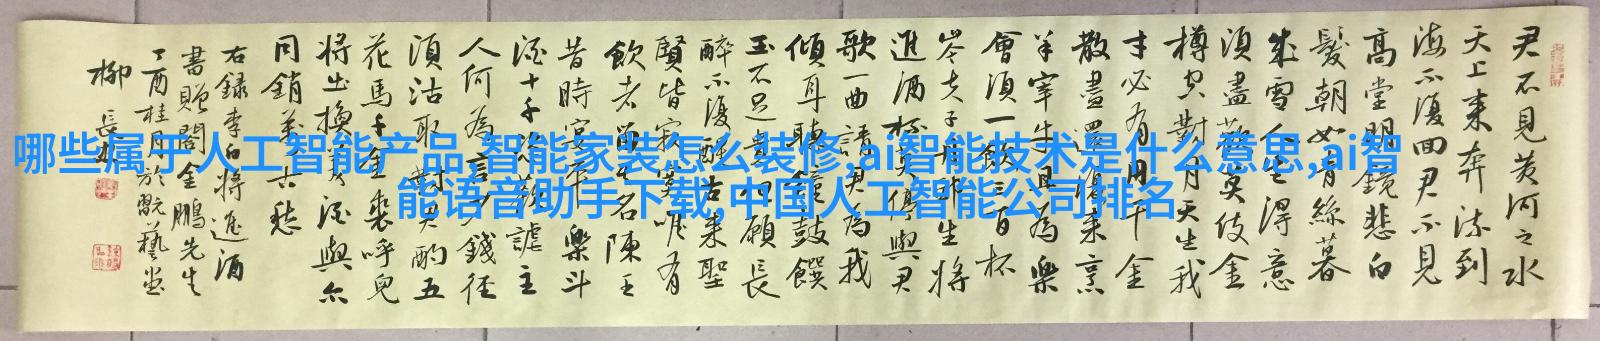 哪些属于人工智能产品,智能家装怎么装修,ai智能技术是什么意思,ai智
能语音助手下载,中国人工智能公司排名
君不見黄河之水
天上来奔流到
海不復回君不見
高堂明鏡悲白
髮朝如青絲暮
成雪人生得意
須盡歡莫使金
樽空對月天生我
才必有用千金
散盡還復来烹
羊宰牛且為樂
會須一飲三百杯
岑夫子丹邱生將
進酒杯莫停與君
歌一曲請君為我
傾耳聽鐘鼓饌
玉不足貴但願長
醉不復醒古来聖
賢皆寂寞唯有
飲者留其名陳王
昔時宴平樂斗
酒十千恣歡謔主
人何為言少錢径
須沽取對君酌五
花馬千金裘呼兒
将出換美酒與尔
同銷萬古愁
右録李白将進酒
書贈閤金鵬先生
丁酉桂月於翫藝堂
柳長